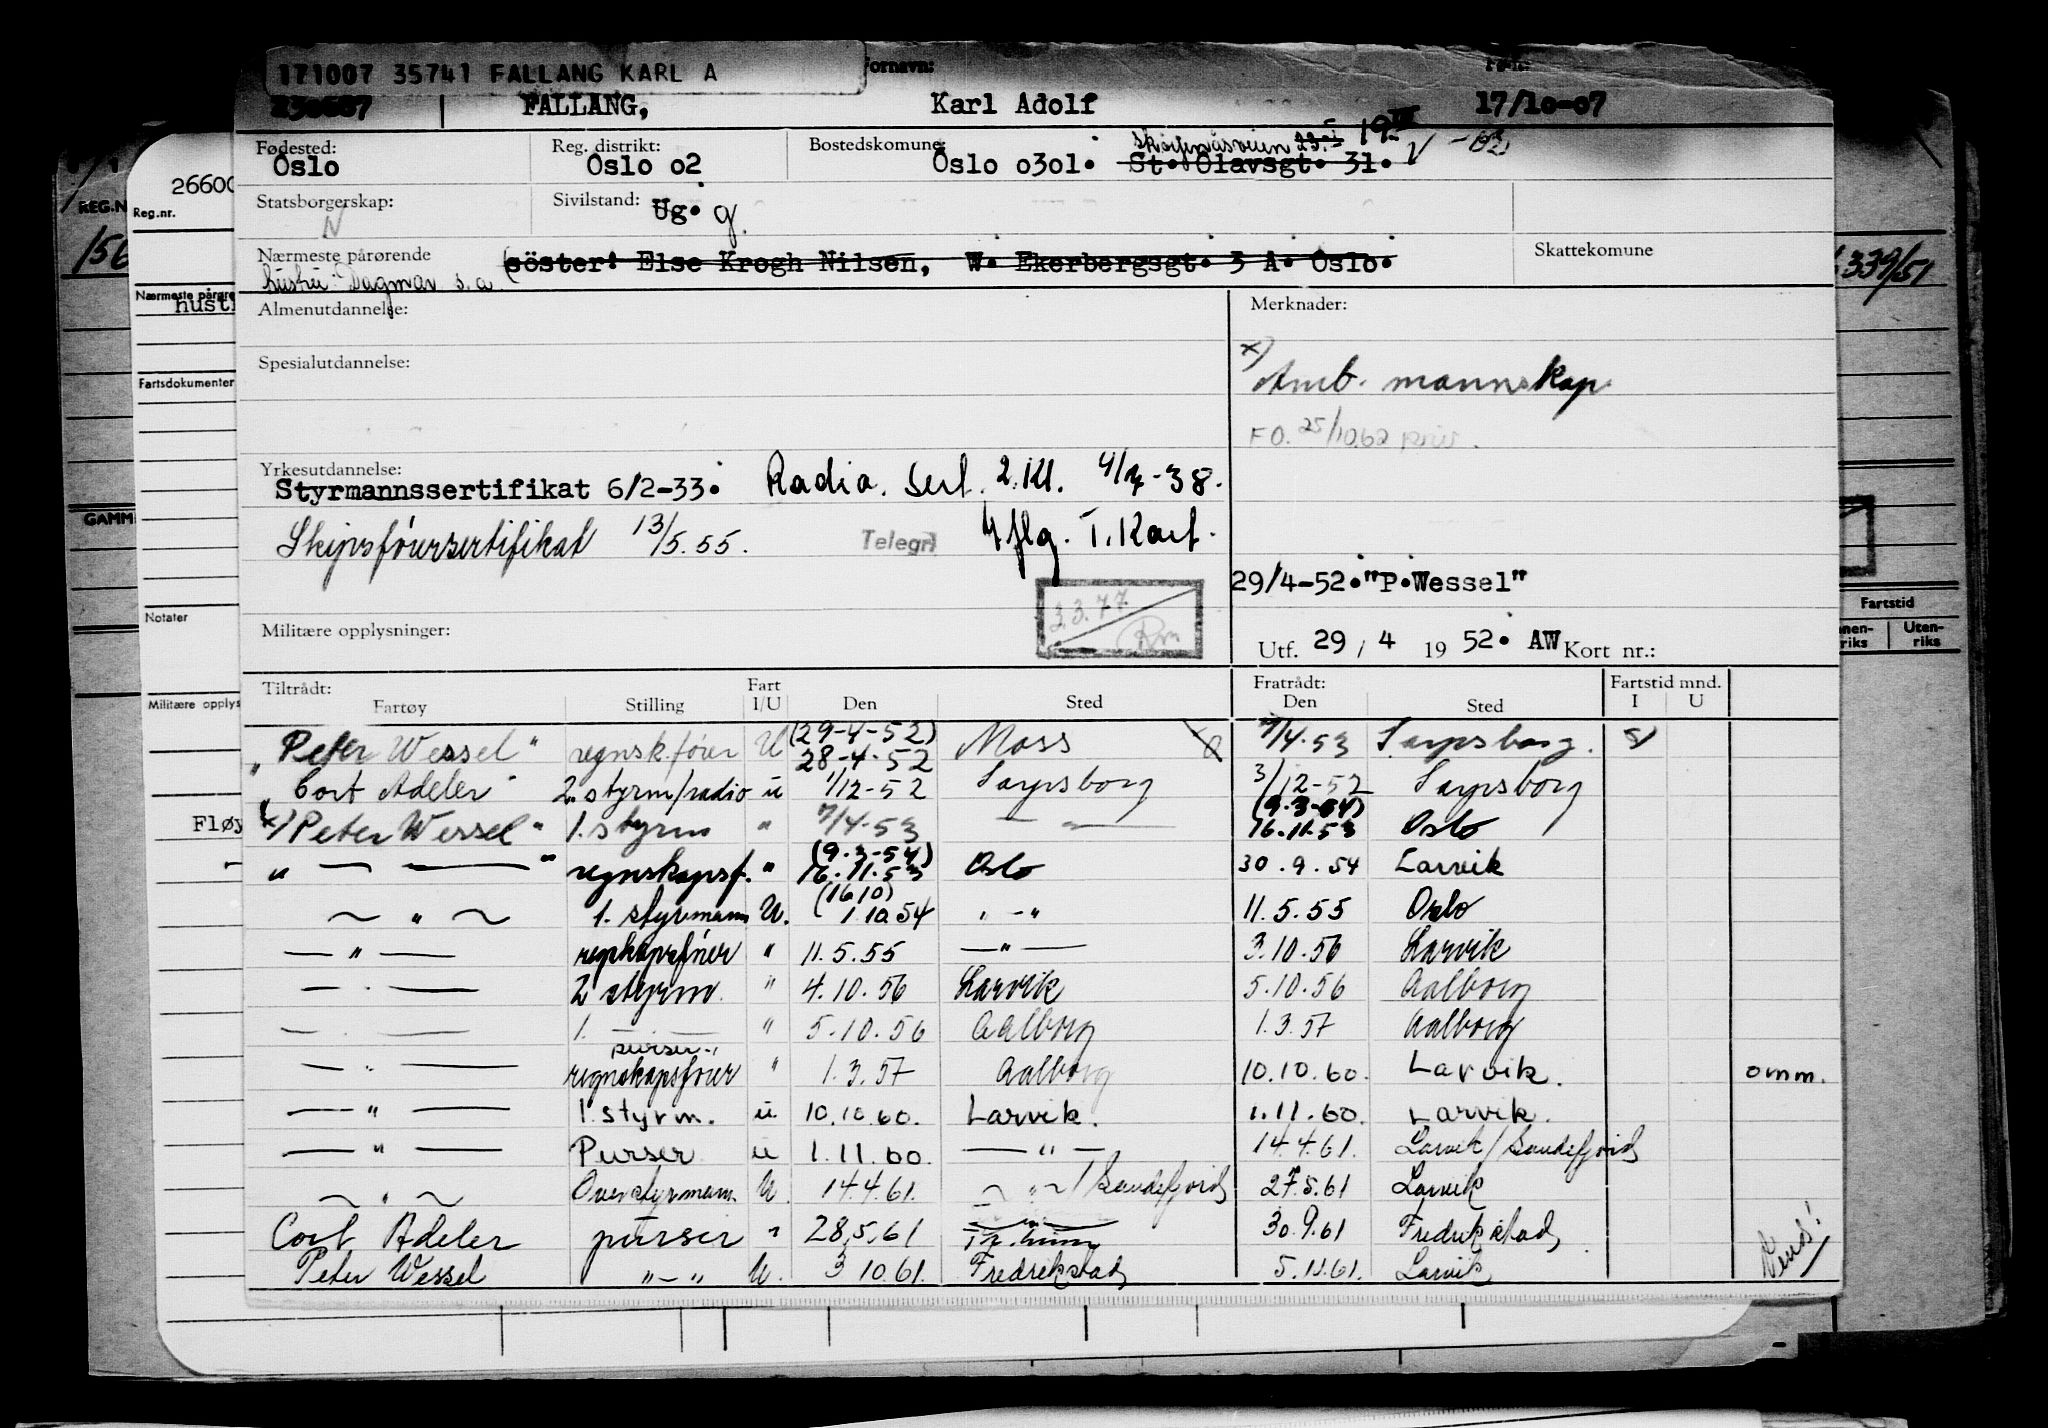 171007 35741 FALLANG KARL A
Fornavn:
FALLANG, Karl Adolf 17/10-07
Fødested: Reg. distrikt: Bostedskommune:
Oslo Oslo 02 Oslo 0301. St. Olavsgt. 31.
26600
REG.N
Reg.nr.
Statsborgerskap: Sivilstand: Ug. g.
N
156
Nærmeste pårørende söster: Else Krogh Nilsen, W. Ekerbergsgt. 3 A. Oslo. Skattekomune
hustru: Dagmar s.a.
339/51
Nærmeste pårøre
hust
Almenutdannelse: Merknader:
Spesialutdannelse:
x) Amb. mannskap
Fartsdokumenter
F.O. 25/10.62
Yrkesutdannelse:
Styrmannssertifikat 6/2-33. Radio. Sert. 2. Kl. -38.
GAMM
Skipsførersertifikat 13/5.55. Telegr
29/4-52."P.Wessel"
3.3.77
Notater
Fartstid
Militære opplysninger: Utf. 29 / 4 19 52. AW Kort nr.:
nen-riks Uten-riks
Tiltrådt: Fart Fratrådt: Fartstid mnd.
Militære opplys
Fartøy Stilling I/U Den Sted Den Sted I U
(29-4-52)
"Peter Wessel" regnsk.fører U 28-4-52 Moss 7/4-53 Sarpsborg.
"Cort Adeler" 2. styrm/radio u 1/12-52 Sarpsborg 3/12-52 Sarpsborg
(9.3-54)
Fløy
x) "Peter Wessel" 1. styrm " 7/4-53 — " — 16.11.53 Oslo
(9.3-54)
" — — " regnskapsf. " 16.11.53 Oslo 30.9.54 Larvik
(16.10)
— " — 1. styrmann U. 1.10.54 " - " 11.5.55 Oslo
— " — regnskapsfører " 11.5.55 — " — 3.10.56 Larvik
— " — 2 styrm. " 4.10.56 Larvik 5.10.56 Aalborg
— " — 1. — — " 5.10.56 Aalborg 1.3.57 Aalborg
purser
— " — regnskapsfører " 1.3.57 Aalborg 10.10.60. Larvik. omm.
— " — 1. styrm. u 10.10.60. Larvik. 1.11.60. Larvik.
— " — Purser u 1.11.60. — " — 14.4.61. Larvik/Sandefjord
— " — Overstyrmann. U. 14.4.61. — " —/Sandefjord 27.5.61 Larvik
Cort Adeler purser " 28.5.61 30.9.61 Fredrikstad
Peter Wessel " — " U. 3.10.61. Fredrikstad 5.11.61. Larvik